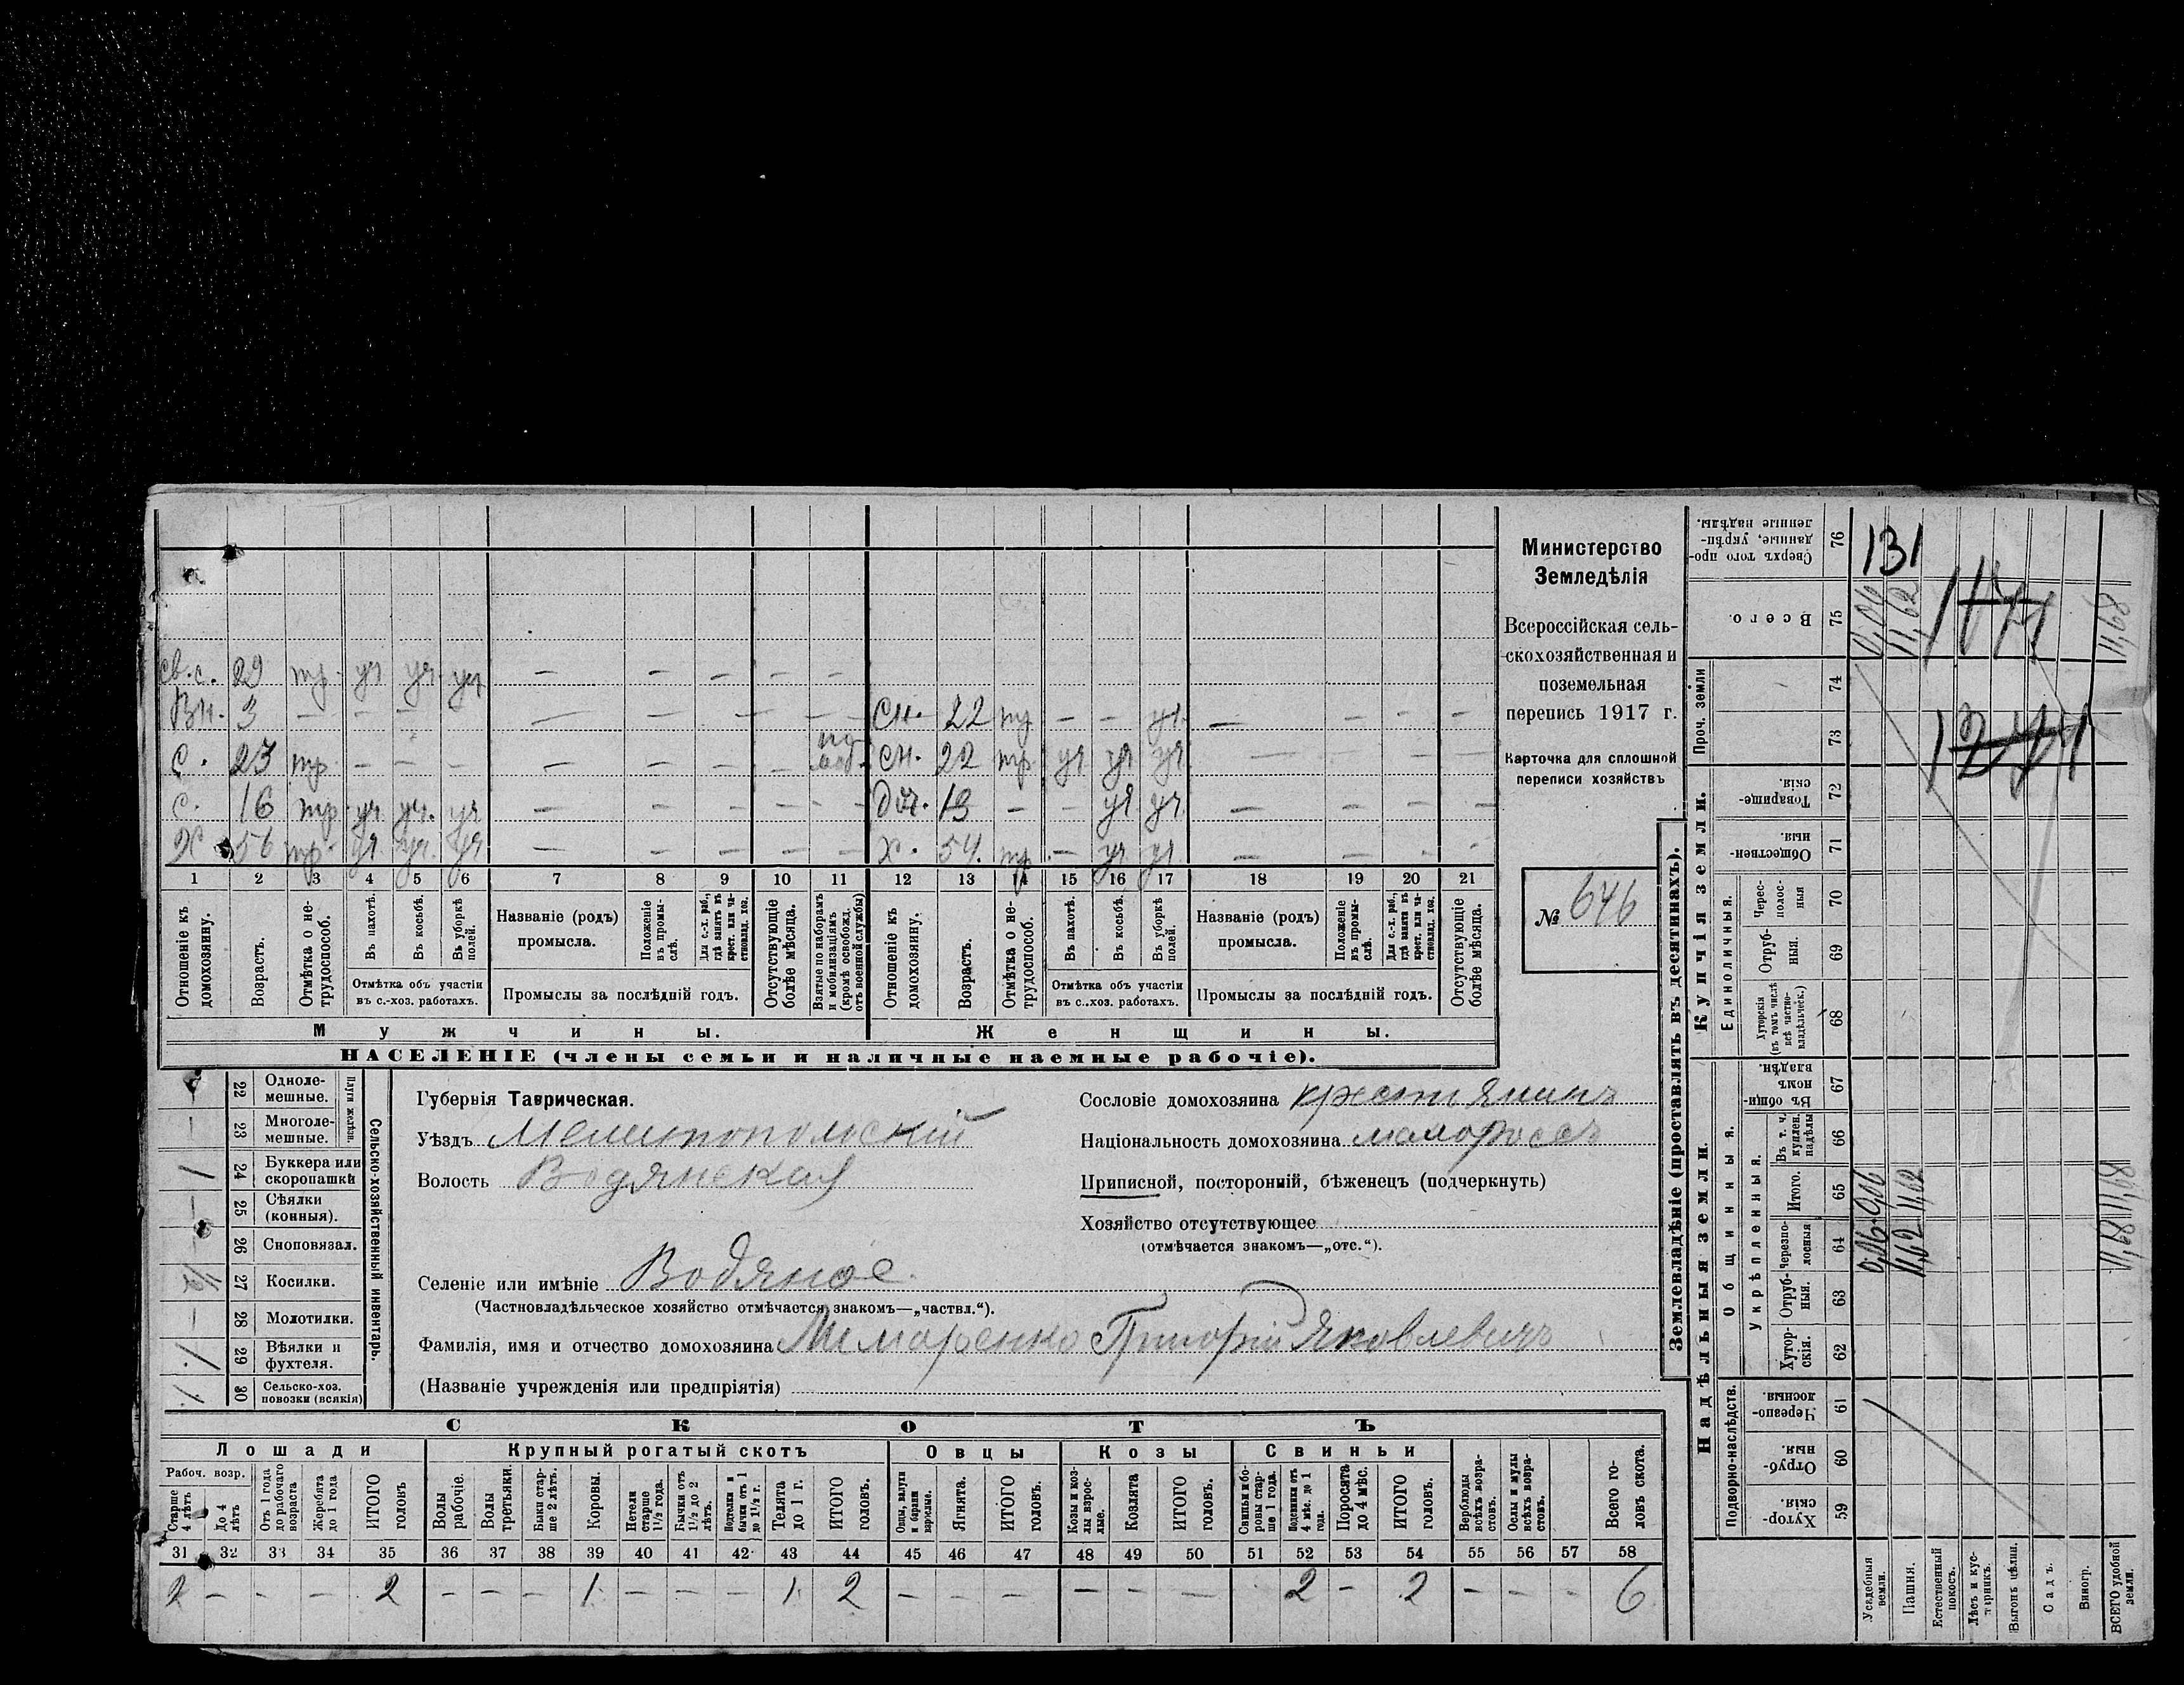 св.с. 29 тр. уч уч. уч — — — — —
Вн. 3 — — — — — — — — — сн. 22 тр — — уч. — — — —
с. 23 тр. — — — — — — — сн. 22 тр. уч уч уч. — — — —
с. 16 тр. уч. уч. уч — — — — — доч. 13 — — уч уч. — — — —
Х 56 тр. уч. уч. уч — — — — — х. 54. тр. — уч уч — — — —
1 2 3 4 5 6 7 8 9 10 11 12 13 14 15 16 17 18 19 20 21
Отношеніе къ домохозяину.
Возрастъ.
Отмѣтка о не-трудоспособ.
Въ пахотѣ.
Въ косьбѣ.
Въ уборкѣ полей.
Отмѣтка объ участіи
въ с.-хоз. работахъ.
Названіе (родъ)
промысла.
Положеніе въ промы-слѣ.
Для с.-х. раб., гдѣ занятъ въ крест. или ча-стновлад. хоз.
Промыслы за послѣдній годъ.
Отсутствующіе болѣе мѣсяца.
Взятые по наборамъ и мобилизаціямъ (кромѣ освобожд. отъ военной службы)
Отношеніе къ домохозяину.
Возрастъ.
Отмѣтка о не-трудоспособ.
Въ пахотѣ.
Въ косьбѣ.
Въ уборкѣ полей.
Отмѣтка объ участіи
въ с..хоз. работахъ.
Названіе (родъ)
промысла.
Положеніе въ промы-слѣ.
Для с.-х. раб., гдѣ занята въ крест. или ча-стновлад. хоз.
Промыслы за послѣдній годъ.
Отсутствующіе болѣе мѣсяца.
Мужчины.
Женщины.
НАСЕЛЕНІЕ (члены семьи и наличные наемные рабочіе).
Министерство
Земледѣлія
Всероссійская сель-
скохозяйственная и
поземельная
перепись 1917 г.
Карточка для сплошной
переписи хозяйствъ
№ 646
— 22 Одноле-мешные.
— 23 Многоле-мешные.
Плуги желѣзн.
1 24 Буккера или скоропашки
— 25 Сѣялки (конныя).
26 Сноповязал.
1/2 27 Косилки.
— 28 Молотилки.
1 29 Вѣялки и фухтеля.
1 30 Сельско-хоз. повозки (всякія)
Сельско-хозяйственный инвентарь.
Губернія Таврическая.
Уѣздъ Мелитопольскій
Волость Водянская
Селеніе или имѣніе Водяное.
(Частновладѣльческое хозяйство отмѣчается знакомъ—„частвл.“).
Фамилія, имя и отчество домохозяина Григорій Яковлевичъ
(Названіе учрежденія или предпріятія)
Сословіе домохозяина крестьянинъ
Національность домохозяина малороссъ
Приписной, посторонній, бѣженецъ (подчеркнуть)
Хозяйство отсутствующее
(отмѣчается знакомъ—„отс.“).
СКОТЪ
Лошади
Крупный рогатый скотъ
Овцы
Козы
Свиньи
Рабоч. возр.
Старше 4 лѣтъ
До 4 лѣтъ
Отъ 1 года до рабочаго возраста
Жеребята до 1 года
ИТОГО головъ
Волы рабочіе.
Волы третьяки.
Быки стар-ше 2 лѣтъ.
Коровы.
Нетели старше 1½ года.
Бычки отъ 1½ до 2 лѣтъ.
Подтелки и бычки отъ 1 до 1½ г.
Телята до 1 г.
ИТОГО головъ.
Овцы, валухи и бараны взрослые.
Ягнята.
ИТОГО головъ.
Козы и коз-лы взрос-лые.
Козлята
ИТОГО головъ.
Свиньи и бо-ровы стар-ше 1 года.
Подсвинки отъ 4 мѣс. до 1 года.
Поросята до 4 мѣс.
ИТОГО головъ.
Верблюды всѣхъ возра-стовъ.
Ослы и мулы всѣхъ возра-стовъ.
Всего го-ловъ скота.
31 32 33 34 35 36 37 38 39 40 41 42 43 44 45 46 47 48 49 50 51 52 53 54 55 56 57 58
2 — — — 2 — — — 1 — — — 1 2 — — — — — — 2 — 2 — — — 6
Землевладѣніе (проставлять въ десятинахъ).
Надѣльныя земли.
Купчія земли.
Проч. земли
Подворно-наслѣдств.
Общинныя.
Укрѣпленныя.
Единоличныя.
Сверхъ того про-данные, укрѣп-ленные надѣлы. 76
Всего. 75
74
73
Товарище-скія. 72
Обществен-ныя. 71
Черес-полос-ныя 70
Отруб-ныя. 69
Хуторскія (въ томъ числѣ всѣ частно-владѣльческ.) 68
Въ общи-номъ владѣн. 67
Въ т. ч. куплен. надѣлы 66
Итого. 65
Черезпо-лосныя 64
Отруб-ныя. 63
Хутор-скія. 62
Черезпо-лосныя. 61
Отруб-ныя. 60
Хутор-скія. 59
131
Усадебныя земли. 0,06 0,06 0,06
Пашня. 11,62 11,62 11,62
Естественный покосъ.
Лѣсъ и кус-тарникъ.
Выгонъ цѣлин.
Садъ.
Виногр.
ВСЕГО удобной земли. 11,68 11,68 11,68